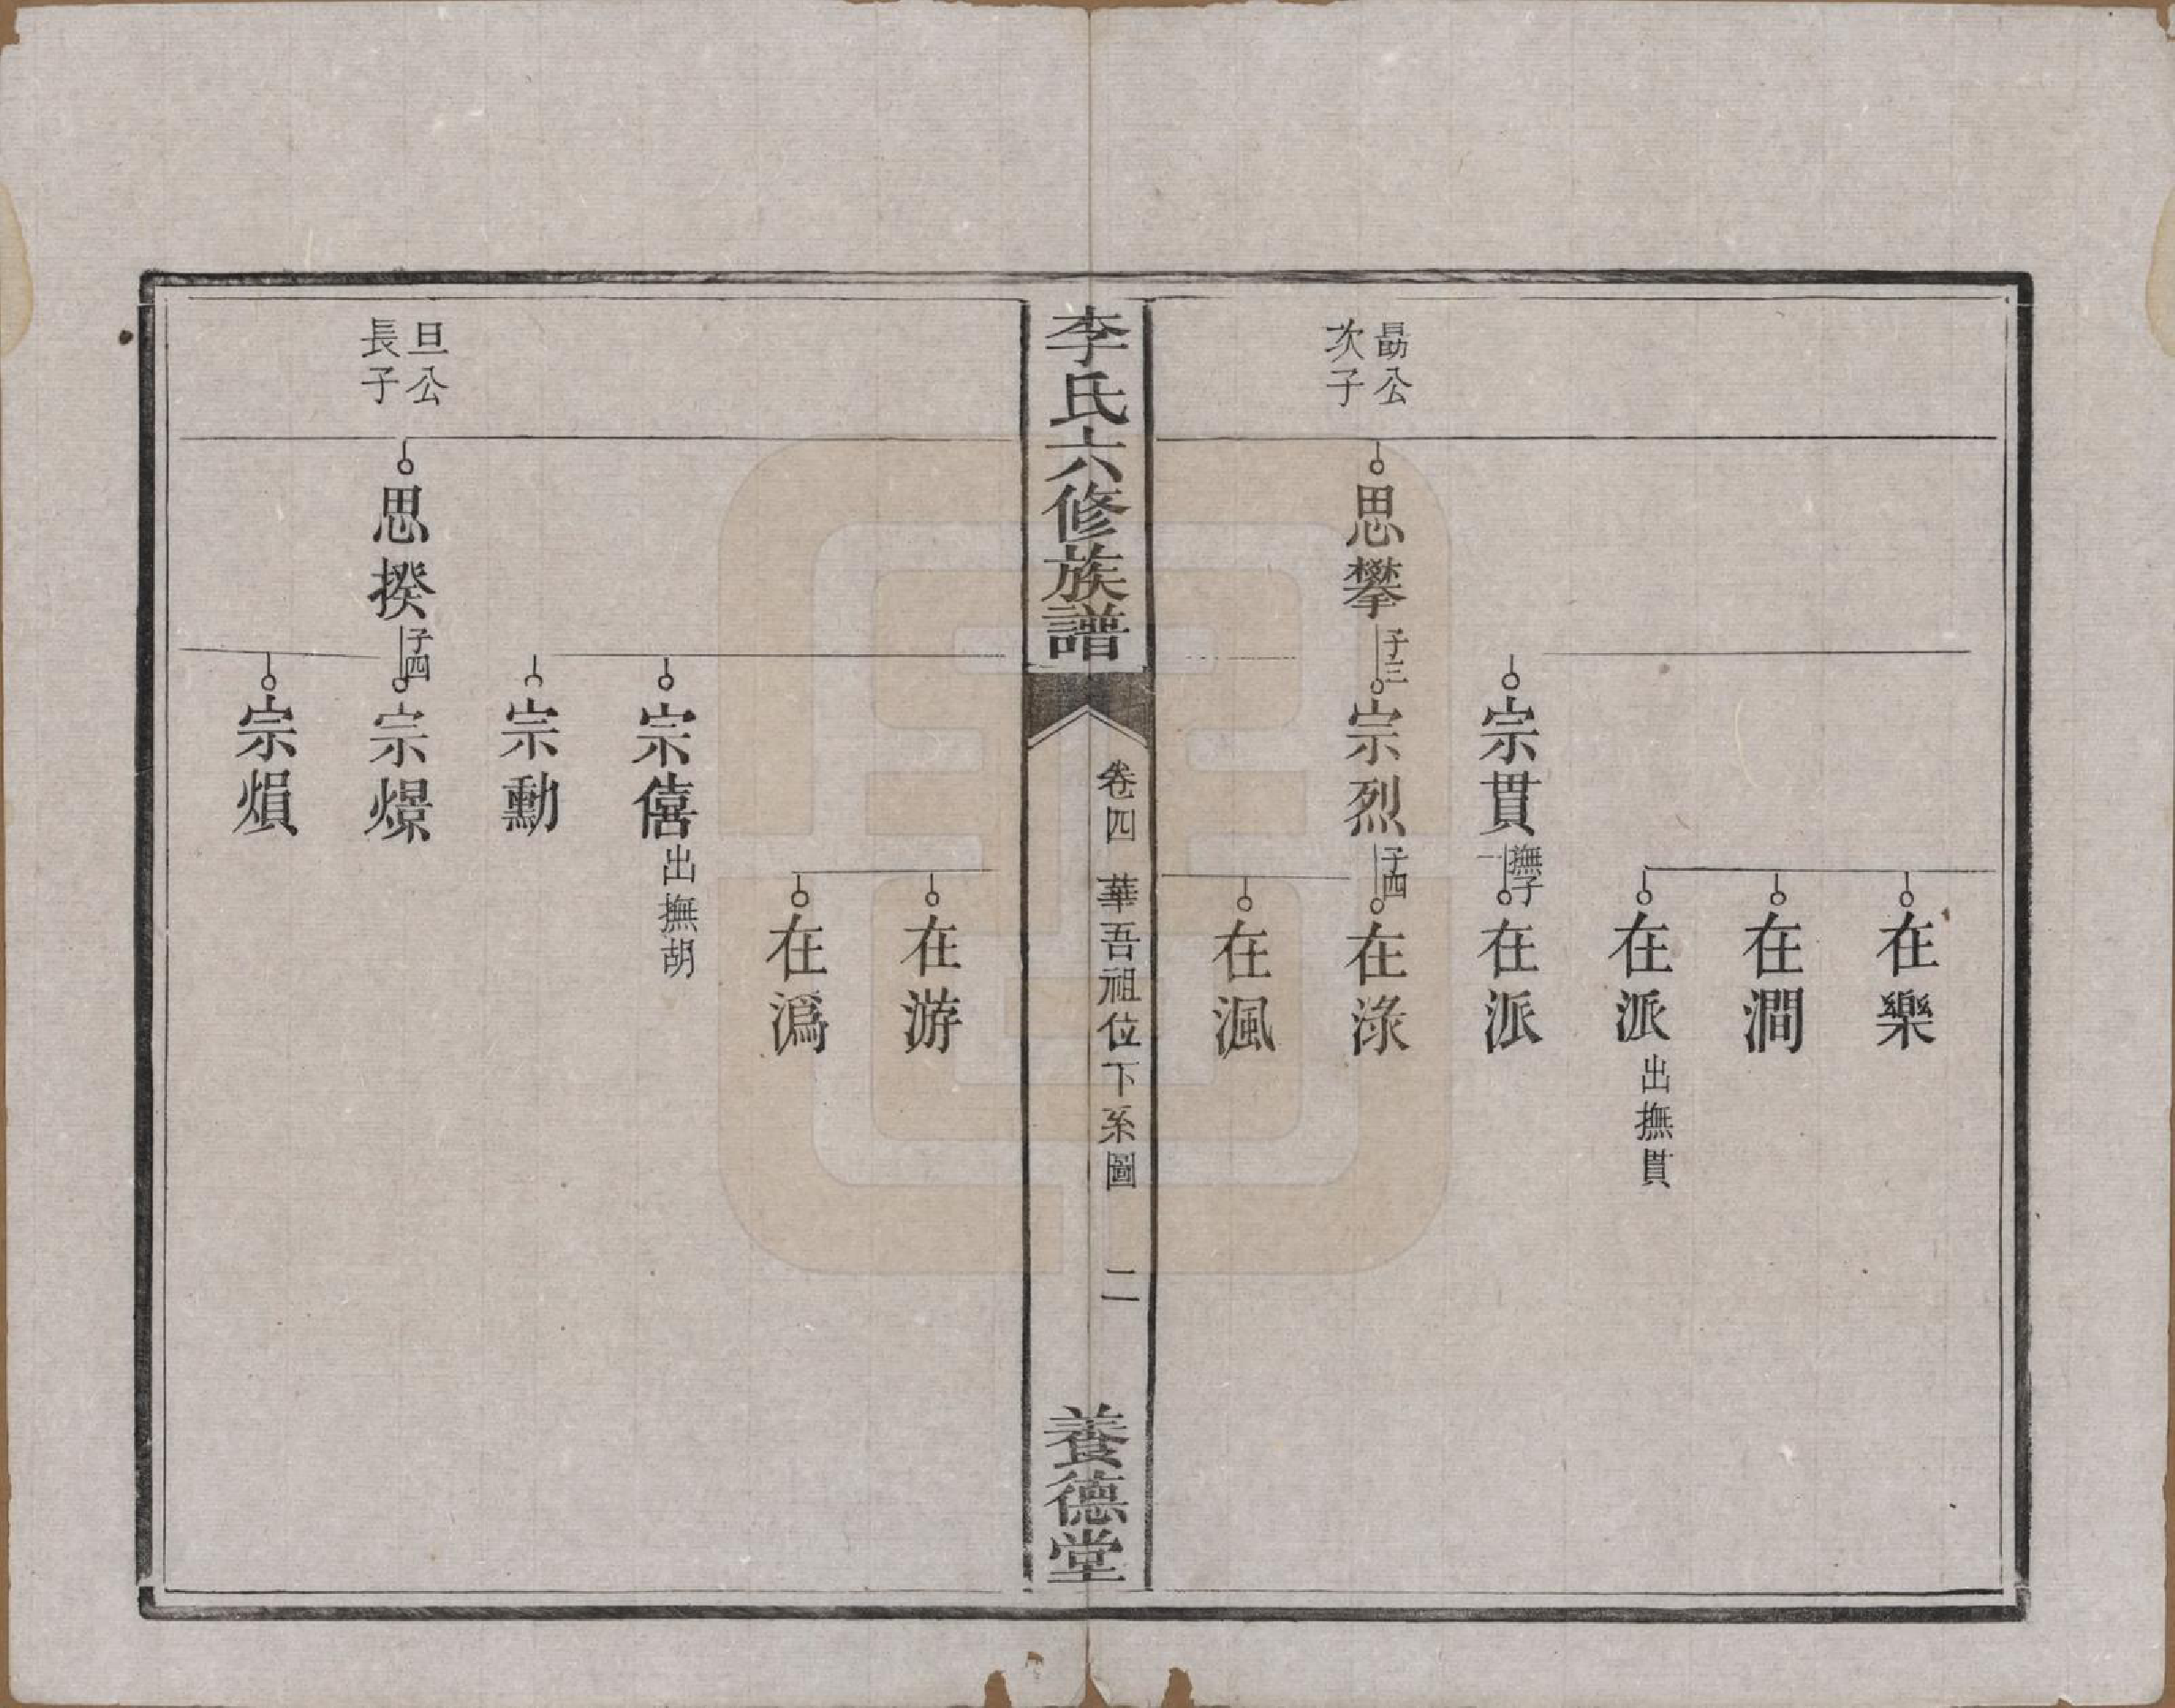 在樂
在澗
在派出撫貫
宗貫撫子一
在派
勗公
次子
思攀子三
宗烈子四
在淥
在渢
李氏六修族譜
卷四
華吾祖位下系圖
二
養德堂
在游
在潙
宗僖出撫胡
宗勳
旦公
長子
思揆子四
宗燝
宗熉